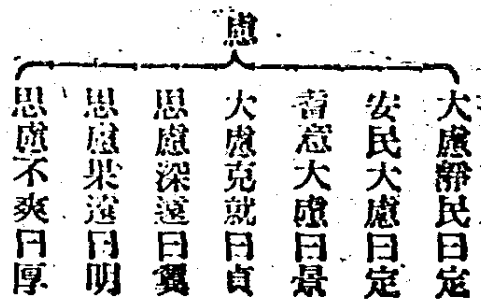 慮
大慮靜民曰定
安民大慮曰定
耆意大慮曰景
大慮克就曰貞
思慮深遠曰翼
思慮果遠曰明
思慮不爽曰厚